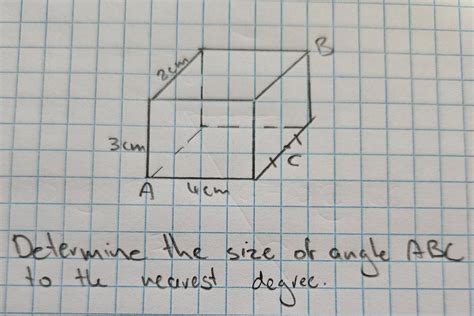 B
2cm
3cm
C
A
4cm
Determine the size of angle ABC
to the nearest degree.